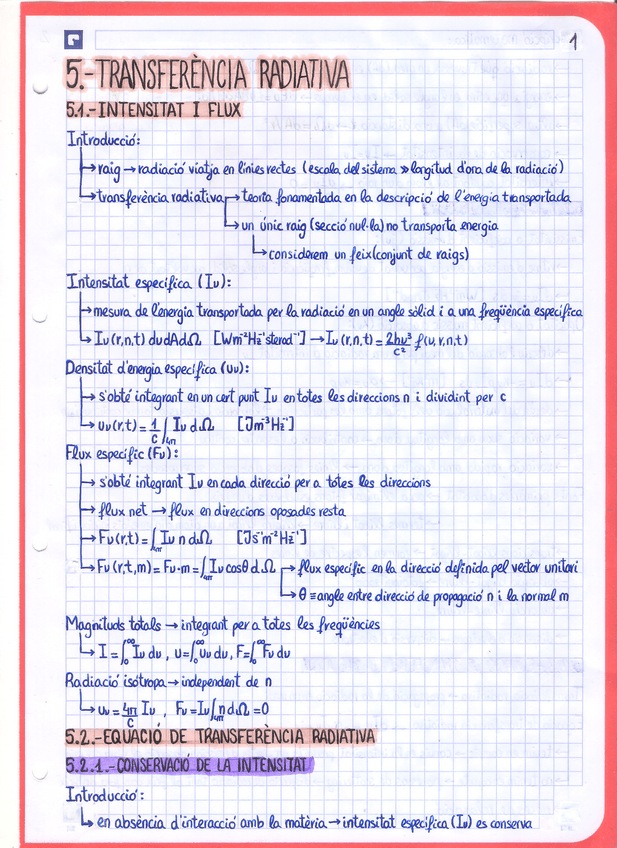 1
5.-TRANSFERÈNCIA RADIATIVA
5.1.-INTENSITAT I FLUX
Introducció:
→raig → radiació viatja en línies rectes (escala del sistema >> longitud d'ona de la radiació)
→transferència radiativa→teoria fonamentada en la descripció de l'energia transportada
→un únic raig (secció nul·la) no transporta energia
→considerem un feix(conjunt de raigs)
Intensitat específica (Iν):
→mesura de l'energia transportada per la radiació en un angle sòlid i a una freqüència específica
→Iν(r,n,t) dνdAdΩ [Wm⁻²Hz⁻¹sterad⁻¹] →Iν(r,n,t)=2hν³/c² f(ν,r,n,t)
Densitat d'energia específica (Uν):
→s'obté integrant en un cert punt Iν en totes les direccions n i dividint per c
→uν(r,t)=1/c ∫4π Iν dΩ [Jm⁻³Hz⁻¹]
Flux específic (Fν):
→s'obté integrant Iν en cada direcció per a totes les direccions
→flux net → flux en direccions oposades resta
→Fν(r,t)=∫4π Iν n dΩ [Js⁻¹m⁻²Hz⁻¹]
→Fν(r,t,m)=Fν·m=∫4π Iν cosθ dΩ →flux específic en la direcció definida pel vector unitari
→θ ≡angle entre direcció de propagació n i la normal m
Magnituds totals → integrant per a totes les freqüències
→I=∫₀^∞ Iν dν , U=∫₀^∞ Uν dν, F=∫₀^∞ Fν dν
Radiació isòtropa → independent de n
→uν=4π/c Iν , Fν=Iν∫4π n dΩ=0
5.2.-EQUACIÓ DE TRANSFERÈNCIA RADIATIVA
5.2.1.-CONSERVACIÓ DE LA INTENSITAT
Introducció:
→en absència d'interacció amb la matèria → intensitat específica (Iν) es conserva